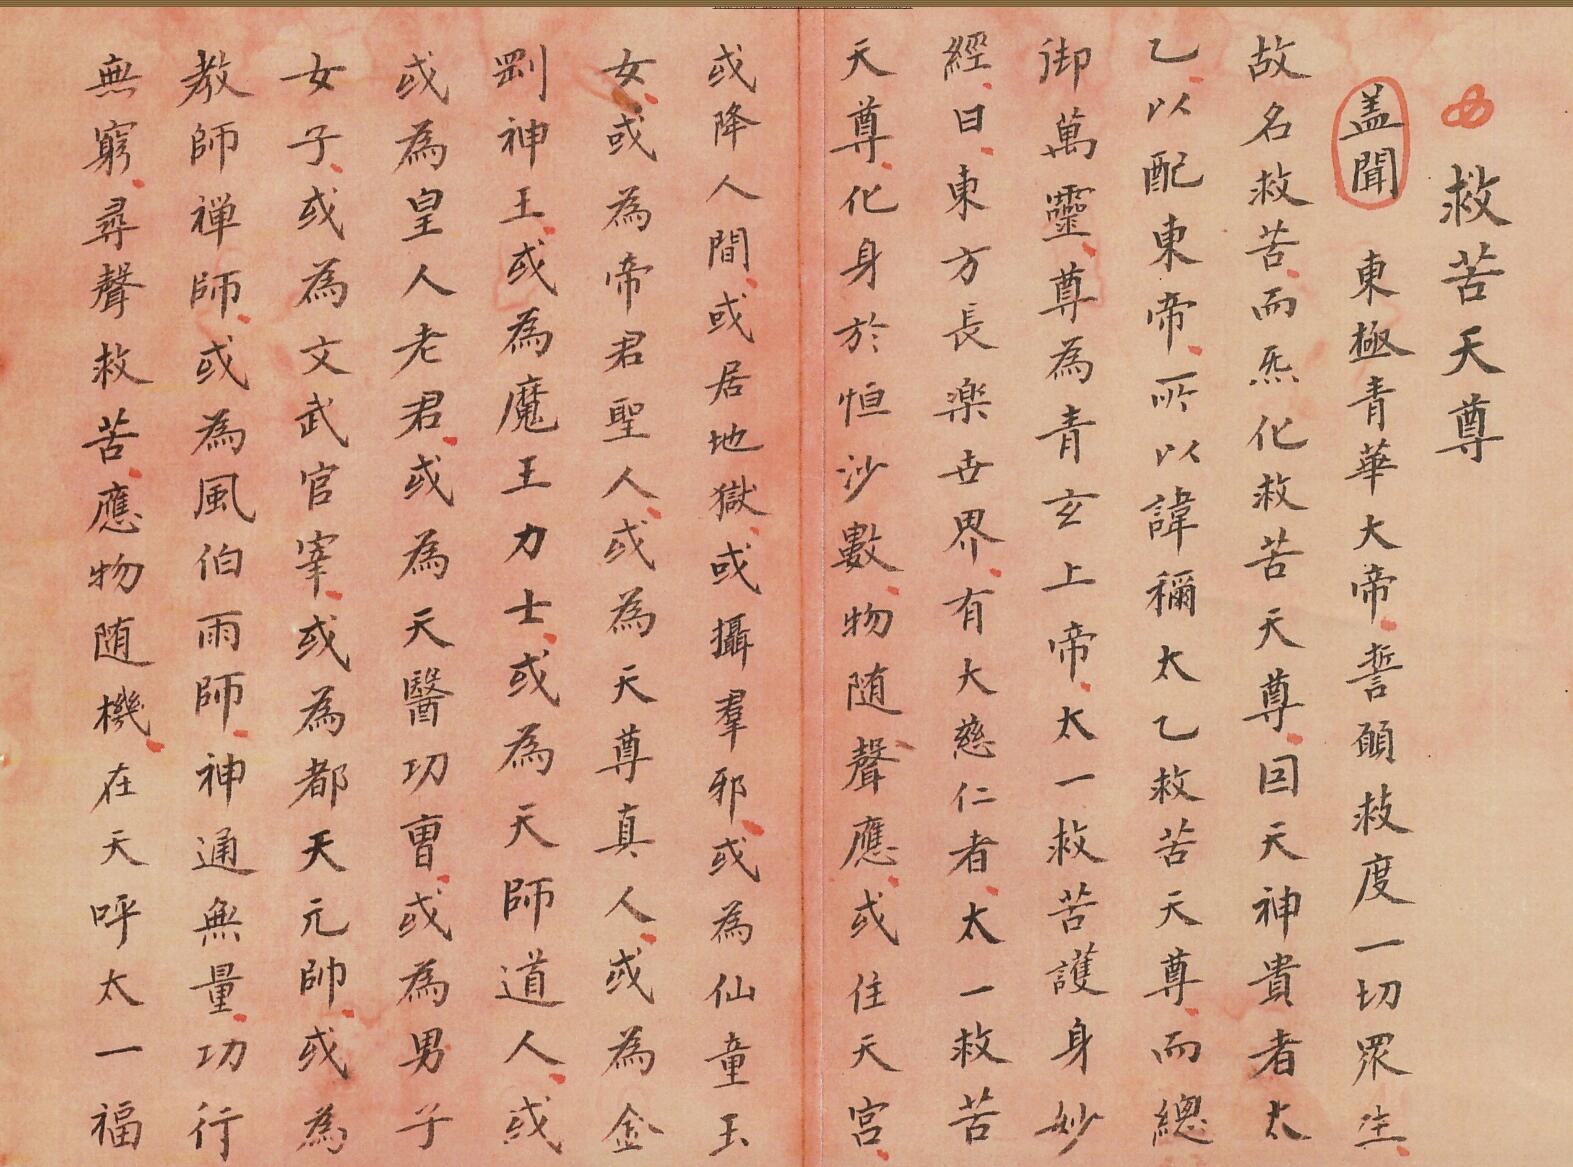 救苦天尊
盖聞 東極青華大帝誓願救度一切眾生
故名救苦而炁化救苦天尊因天神貴者太
乙以配東帝所以諱稱太乙救苦天尊而總
御萬靈尊為青玄上帝太一救苦護身妙
經曰東方長楽世界有大慈仁者太一救苦
天尊化身於恒沙數物随聲應或住天宮
或降人間或居地獄或攝羣邪或為仙童玉
女或為帝君聖人或為天尊真人或為金
剛神王或為魔王力士或為天師道人或
或為皇人老君或為天醫功曹或為男子
女子或為文武官宰或為都天元帥或為
教師禅師或為風伯雨師神通無量功行
無窮尋聲救苦應物随機在天呼太一福